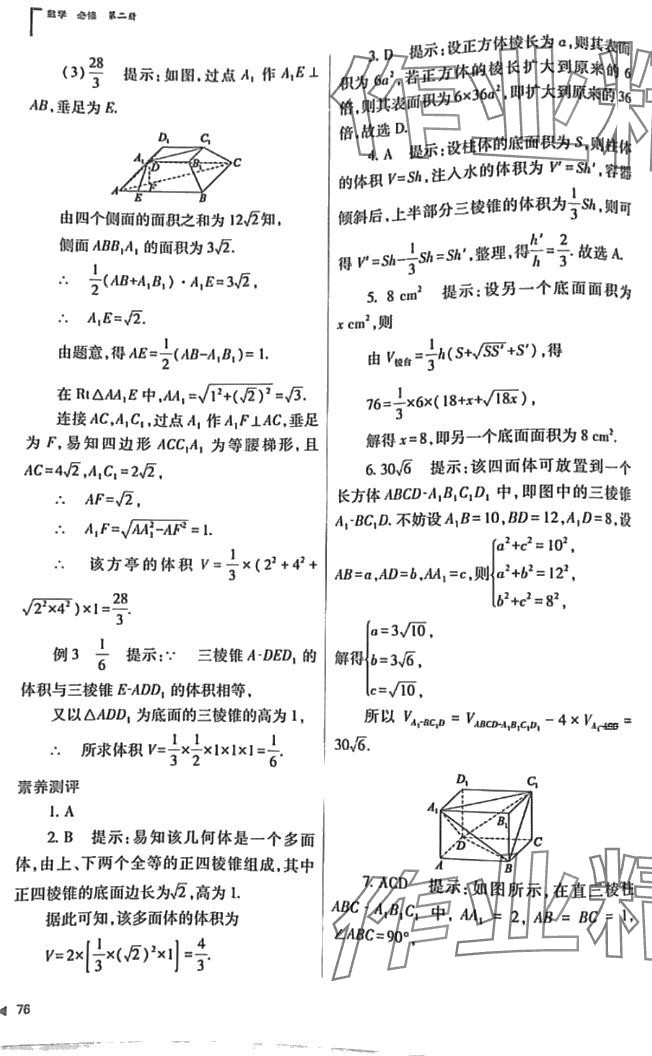 数学 必修 第二册
(3)28/3 提示:如图,过点 A₁ 作 A₁E⊥
AB,垂足为 E.
D₁ C₁
A₁ D B₁ C
A E F B
由四个侧面的面积之和为 12√2知,
侧面 ABB₁A₁ 的面积为 3√2.
∴ 1/2(AB+A₁B₁)·A₁E=3√2,
∴ A₁E=√2.
由题意,得 AE=1/2(AB-A₁B₁)=1.
在 Rt△AA₁E 中,AA₁=√(1²+(√2)²)=√3.
连接 AC,A₁C₁,过点 A₁ 作 A₁F⊥AC,垂足
为 F,易知四边形 ACC₁A₁ 为等腰梯形,且
AC=4√2,A₁C₁=2√2,
∴ AF=√2,
∴ A₁F=√(AA₁²-AF²)=1.
∴ 该方亭的体积 V=1/3×(2²+4²+
√(2²×4²))×1=28/3.
例3 1/6 提示:∵ 三棱锥 A-DED₁ 的
体积与三棱锥 E-ADD₁ 的体积相等,
又以△ADD₁ 为底面的三棱锥的高为 1,
∴ 所求体积 V=1/3×1/2×1×1×1=1/6.
素养测评
1. A
2. B 提示:易知该几何体是一个多面
体,由上、下两个全等的正四棱锥组成,其中
正四棱锥的底面边长为√2,高为 1.
据此可知,该多面体的体积为
V=2×[1/3×(√2)²×1]=4/3.
76
3. D 提示:设正方体棱长为 a,则其表面
积为 6a²,若正方体的棱长扩大到原来的 6
倍,则其表面积为 6×36a²,即扩大到原来的 36
倍,故选 D.
4. A 提示:设柱体的底面积为 S,则柱体
的体积 V=Sh,注入水的体积为 V'=Sh',容器
倾斜后,上半部分三棱锥的体积为1/3Sh,则可
得 V'=Sh-1/3Sh=Sh',整理,得h'/h=2/3.故选 A.
5. 8 cm² 提示:设另一个底面面积为
x cm²,则
由 V棱台=1/3h(S+√(SS')+S'),得
76=1/3×6×(18+x+√(18x)),
解得 x=8,即另一个底面面积为 8 cm².
6. 30√6 提示:该四面体可放置到一个
长方体 ABCD-A₁B₁C₁D₁ 中,即图中的三棱锥
A₁-BC₁D.不妨设 A₁B=10,BD=12,A₁D=8,设
AB=a,AD=b,AA₁=c,则{a²+c²=10²,
a²+b²=12²,
b²+c²=8²,
解得{a=3√10,
b=3√6,
c=√10,
所以 V_{A₁-BC₁D}=V_{ABCD-A₁B₁C₁D₁}-4×V=
30√6.
D₁ C₁
A₁ B₁
D C
A B
7. ACD 提示:如图所示,在直三棱柱
ABC-A₁B₁C₁ 中,AA₁=2,AB=BC=1,
∠ABC=90°,
作业精
作业精